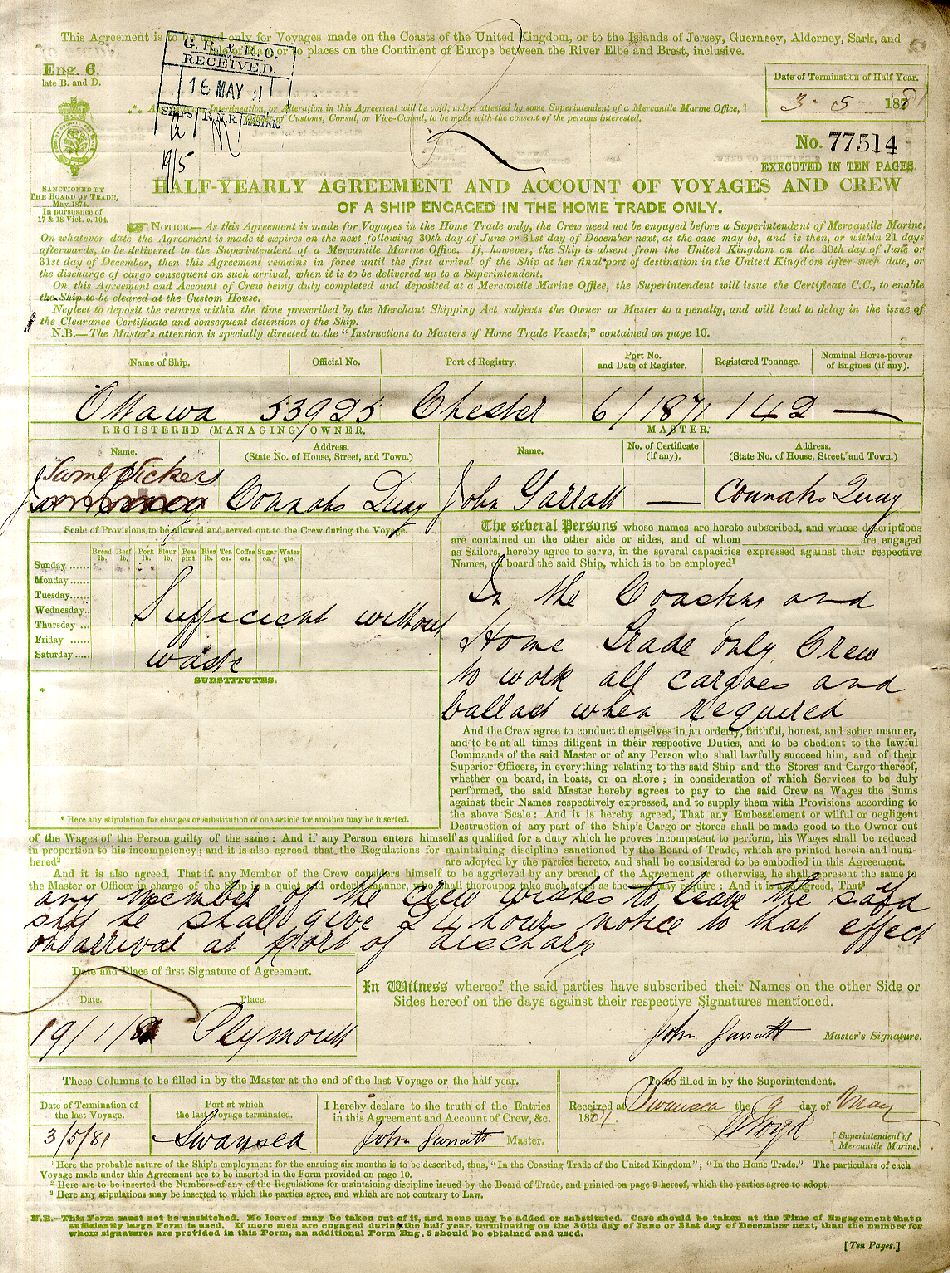 This Agreement is to be used only for Voyages made on the Coasts of the United Kingdom, or to the Islands of Jersey, Guernsey, Alderney, Sark, and
Isle of Man, or to places on the Continent of Europe between the River Elbe and Brest, inclusive.
Eng. 6.
late B. and D.
RECEIVED
16 MAY
19/5
Date of Termination of Half Year.
3 - 5 - 1881
Any Erasure, Interlineation, or Alteration in this Agreement will be void, unless attested by some Superintendent of a Mercantile Marine Office,
Officer of Customs, Consul, or Vice-Consul, to be made with the consent of the persons interested.
No. 77514
EXECUTED IN TEN PAGES.
SANCTIONED BY
THE BOARD OF TRADE,
May, 1871.
In pursuance of
17 & 18 Vict. c. 104.
HALF-YEARLY AGREEMENT AND ACCOUNT OF VOYAGES AND CREW
OF A SHIP ENGAGED IN THE HOME TRADE ONLY.
NOTICE.—As this Agreement is made for Voyages in the Home Trade only, the Crew need not be engaged before a Superintendent of Mercantile Marine.
On whatever date the Agreement is made it expires on the next following 30th day of June or 31st day of December next, as the case may be, and is then, or within 21 days
afterwards, to be delivered to the Superintendent of a Mercantile Marine Office. If, however, the Ship is absent from the United Kingdom on the 30th day of June or
31st day of December, then this Agreement remains in force until the first arrival of the Ship at her final port of destination in the United Kingdom after such date, or
the discharge of cargo consequent on such arrival, when it is to be delivered up to a Superintendent.
On this Agreement and Account of Crew being duly completed and deposited at a Mercantile Marine Office, the Superintendent will issue the Certificate C.C., to enable
the Ship to be cleared at the Custom House.
Neglect to deposit the returns within the time prescribed by the Merchant Shipping Act subjects the Owner or Master to a penalty, and will lead to delay in the issue of
the Clearance Certificate and consequent detention of the Ship.
N.B.—The Master's attention is specially directed to the "Instructions to Masters of Home Trade Vessels," contained on page 10.
Name of Ship. Official No. Port of Registry. Port No. and Date of Register. Registered Tonnage. Nominal Horse-power of Engines (if any).
Ottawa 53925 Chester 6/1871 142 —
REGISTERED (MANAGING) OWNER. MASTER.
Name. Address. (State No. of House, Street, and Town.) Name. No. of Certificate (if any). Address. (State No. of House, Street, and Town.)
Vickers Connahs Quay John Garratt — Connahs Quay
Scale of Provisions to be allowed and served out to the Crew during the Voyage.
Bread lb. Beef lb. Pork lb. Flour lb. Peas pint. Rice lb. Tea oz. Coffee oz. Sugar oz. Water qts.
Sunday......
Monday......
Tuesday......
Wednesday..
Thursday ....
Friday ......
Saturday....
Sufficient without
waste
SUBSTITUTES.
* Here any stipulation for changes or substitution of one article for another may be inserted.
The several Persons whose names are hereto subscribed, and whose descriptions
are contained on the other side or sides, and of whom ______ are engaged
as Sailors, hereby agree to serve, in the several capacities expressed against their respective
Names, on board the said Ship, which is to be employed¹
In the Coasting and
Home Trade only Crew
to work all cargoes and
ballast when required
And the Crew agree to conduct themselves in an orderly, faithful, honest, and sober manner,
and to be at all times diligent in their respective Duties, and to be obedient to the lawful
Commands of the said Master or of any Person who shall lawfully succeed him, and of their
Superior Officers, in everything relating to the said Ship and the Stores and Cargo thereof,
whether on board, in boats, or on shore; in consideration of which Services to be duly
performed, the said Master hereby agrees to pay to the said Crew as Wages the Sums
against their Names respectively expressed, and to supply them with Provisions according to
the above Scale: And it is hereby agreed, That any Embezzlement or wilful or negligent
Destruction of any part of the Ship's Cargo or Stores shall be made good to the Owner out
of the Wages of the Person guilty of the same: And if any Person enters himself as qualified for a duty which he proves incompetent to perform, his Wages shall be reduced
in proportion to his incompetency; and it is also agreed, that the Regulations for maintaining discipline sanctioned by the Board of Trade, which are printed herein and num-
bered² are adopted by the parties hereto, and shall be considered to be embodied in this Agreement.
And it is also agreed, That if any Member of the Crew considers himself to be aggrieved by any breach of the Agreement or otherwise, he shall represent the same to
the Master or Officer in charge of the Ship in a quiet and orderly manner, who shall thereupon take such steps as the case may require: And it is also agreed, That³
any member of the crew wishes to leave the said
ship he shall give 24 hours notice to that effect
on arrival at port of discharge
Date and Place of first Signature of Agreement.
Date. Place.
19/1/81 Plymouth
In Witness whereof the said parties have subscribed their Names on the other Side or
Sides hereof on the days against their respective Signatures mentioned.
John Garratt Master's Signature.
These Columns to be filled in by the Master at the end of the last Voyage or the half year.
To be filled in by the Superintendent.
Date of Termination of the last Voyage. Port at which the last Voyage terminated. I hereby declare to the truth of the Entries in this Agreement and Account of Crew, &c.
3/5/81 Swansea John Garratt Master.
Received at Swansea the 9 day of May
1881
Lloyd
Superintendent of
Mercantile Marine.
¹ Here the probable nature of the Ship's employment for the ensuing six months is to be described, thus, "In the Coasting Trade of the United Kingdom"; "In the Home Trade." The particulars of each
Voyage made under this Agreement are to be inserted in the Form provided on page 10.
² Here are to be inserted the Numbers of any of the Regulations for maintaining discipline issued by the Board of Trade, and printed on page 9 hereof, which the parties agree to adopt.
³ Here any stipulations may be inserted to which the parties agree, and which are not contrary to Law.
N.B.—This Form must not be unstitched. No leaves may be taken out of it, and none may be added or substituted. Care should be taken at the Time of Engagement that a
sufficiently large Form is used. If more men are engaged during the half year, terminating on the 30th day of June or 31st day of December next, than the number for
whom signatures are provided in this Form, an additional Form Eng. 6 should be obtained and used.
[Ten Pages.]